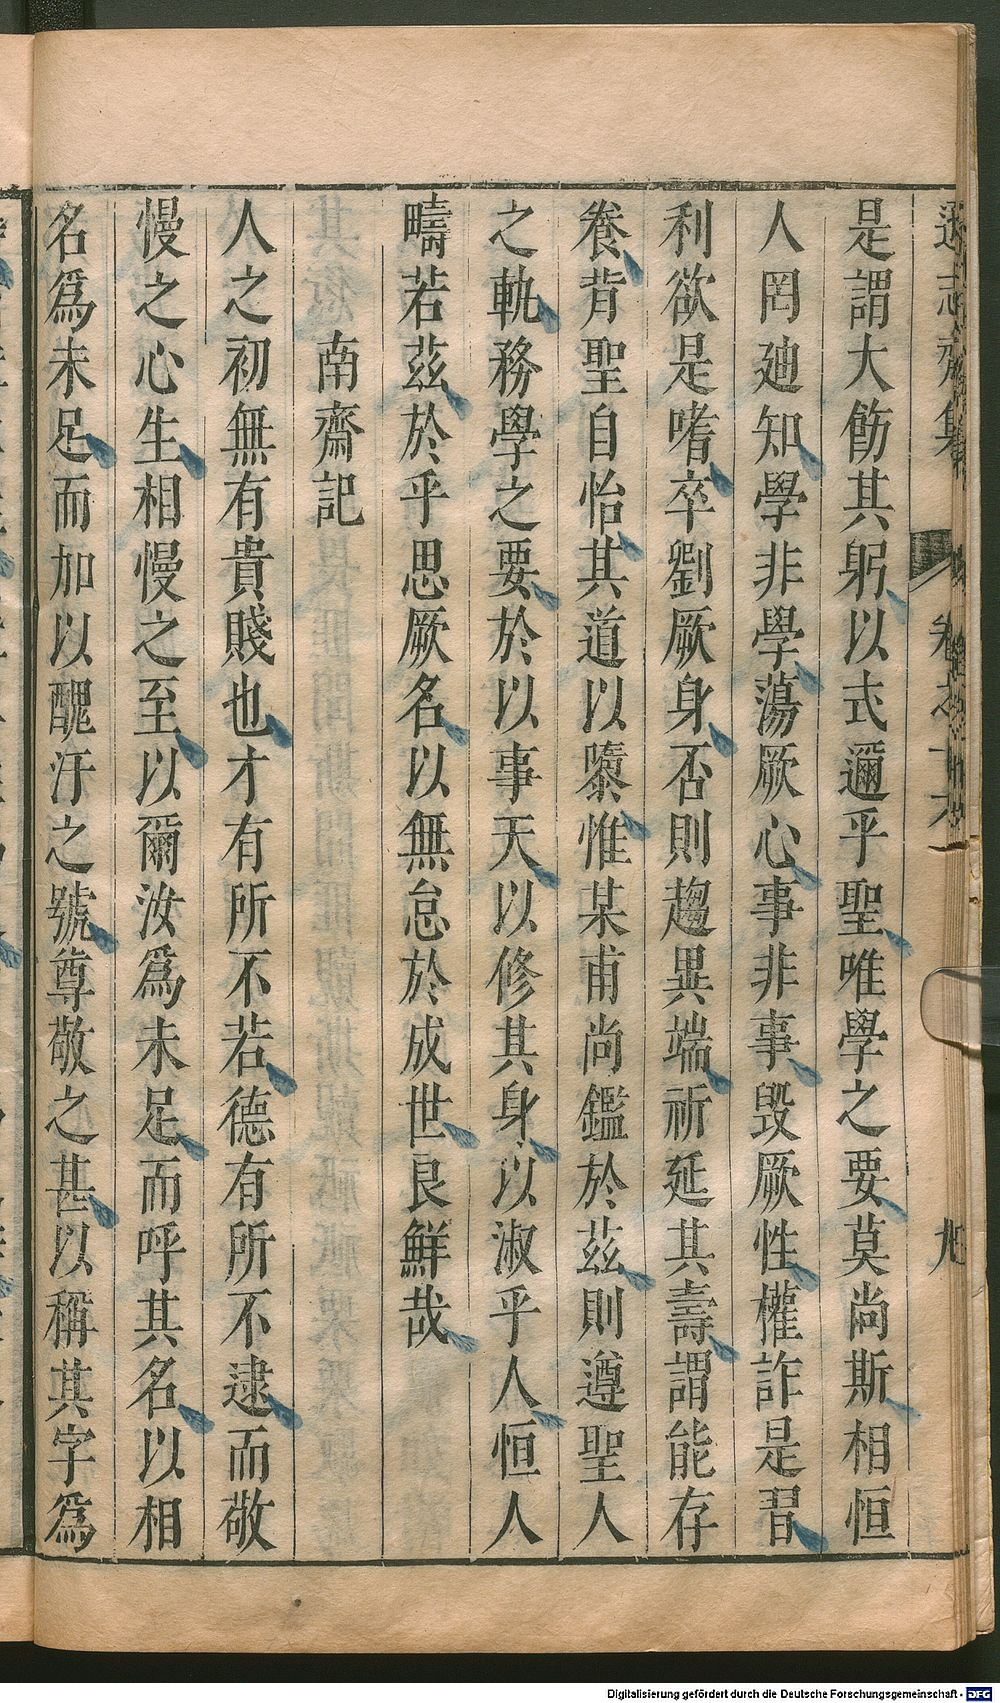 遜志齋集 卷之十六 九
是謂大飭其躬以式邇乎聖唯學之要莫尚斯相恒
人罔廸知學非學蕩厥心事非事毁厥性權詐是習
利欲是嗜卒劉厥身否則趨異端祈延其壽謂能存
養背聖自怡其道以隳惟某甫尚鑑於茲則遵聖人
之軌務學之要於以事天以修其身以淑乎人恒人
疇若茲於乎思厥名以無怠於成世良鮮哉
南齋記
人之初無有貴賤也才有所不若德有所不逮而敬
慢之心生相慢之至以爾汝爲未足而呼其名以相
名爲未足而加以醜汙之號尊敬之甚以稱其字爲
Digitalisierung gefördert durch die Deutsche Forschungsgemeinschaft - DFG